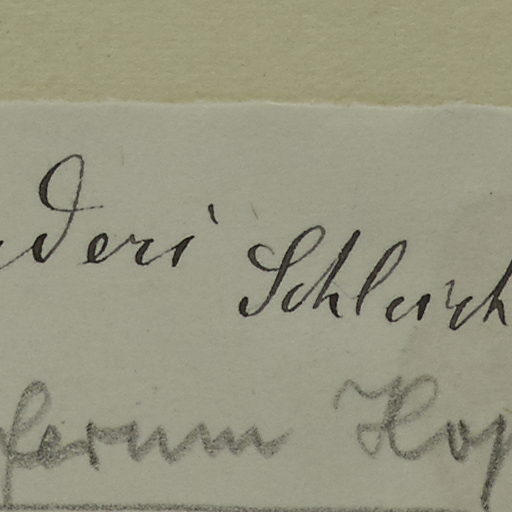 deri Schleich
ferum Hop